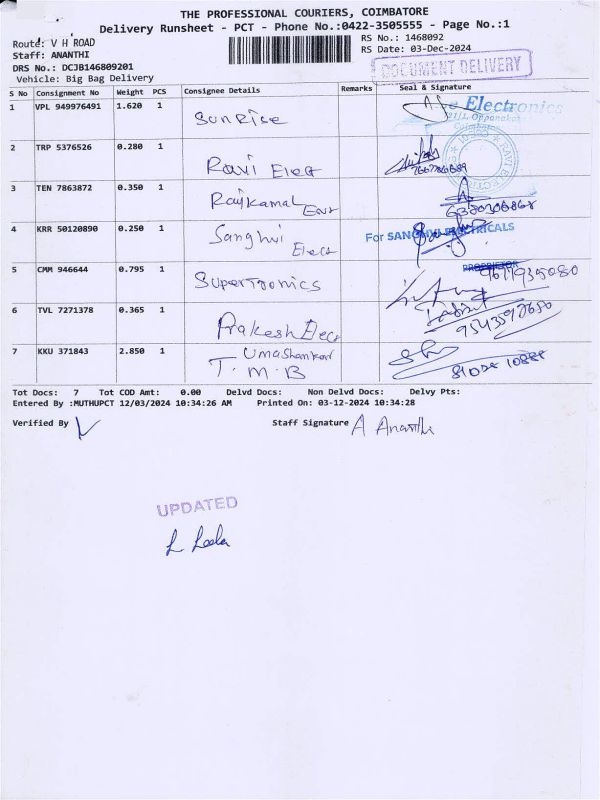 THE PROFESSIONAL COURIERS, COIMBATORE
Delivery Runsheet - PCT - Phone No.:0422-3505555 - Page No.:1
Route: V H ROAD
RS No.: 1468092
Staff: ANANTHI
RS Date: 03-Dec-2024
DRS No.: DCJB146809201
DOCUMENT DELIVERY
Vehicle: Big Bag Delivery
S No Consignment No Weight PCS Consignee Details Remarks Seal & Signature
1 VPL 949976491 1.620 1 Sunrise Electronics
2 TRP 5376526 0.280 1 Ravi Elect
3 TEN 7863872 0.350 1 Rajkamal
4 KRR 50120890 0.250 1 Sanghvi Elect For SANGHVI ELECTRICALS
PROPRIETOR
5 CMM 946644 0.795 1 Supertronics
6 TVL 7271378 0.365 1 Prakesh Elec
7 KKU 371843 2.850 1 Umashankar
T.M.B
Tot Docs: 7 Tot COD Amt: 0.00 Delvd Docs: Non Delvd Docs: Delvy Pts:
Entered By :MUTHUPCT 12/03/2024 10:34:26 AM Printed On: 03-12-2024 10:34:28
Verified By Staff Signature A Ananthi
UPDATED
L Leela